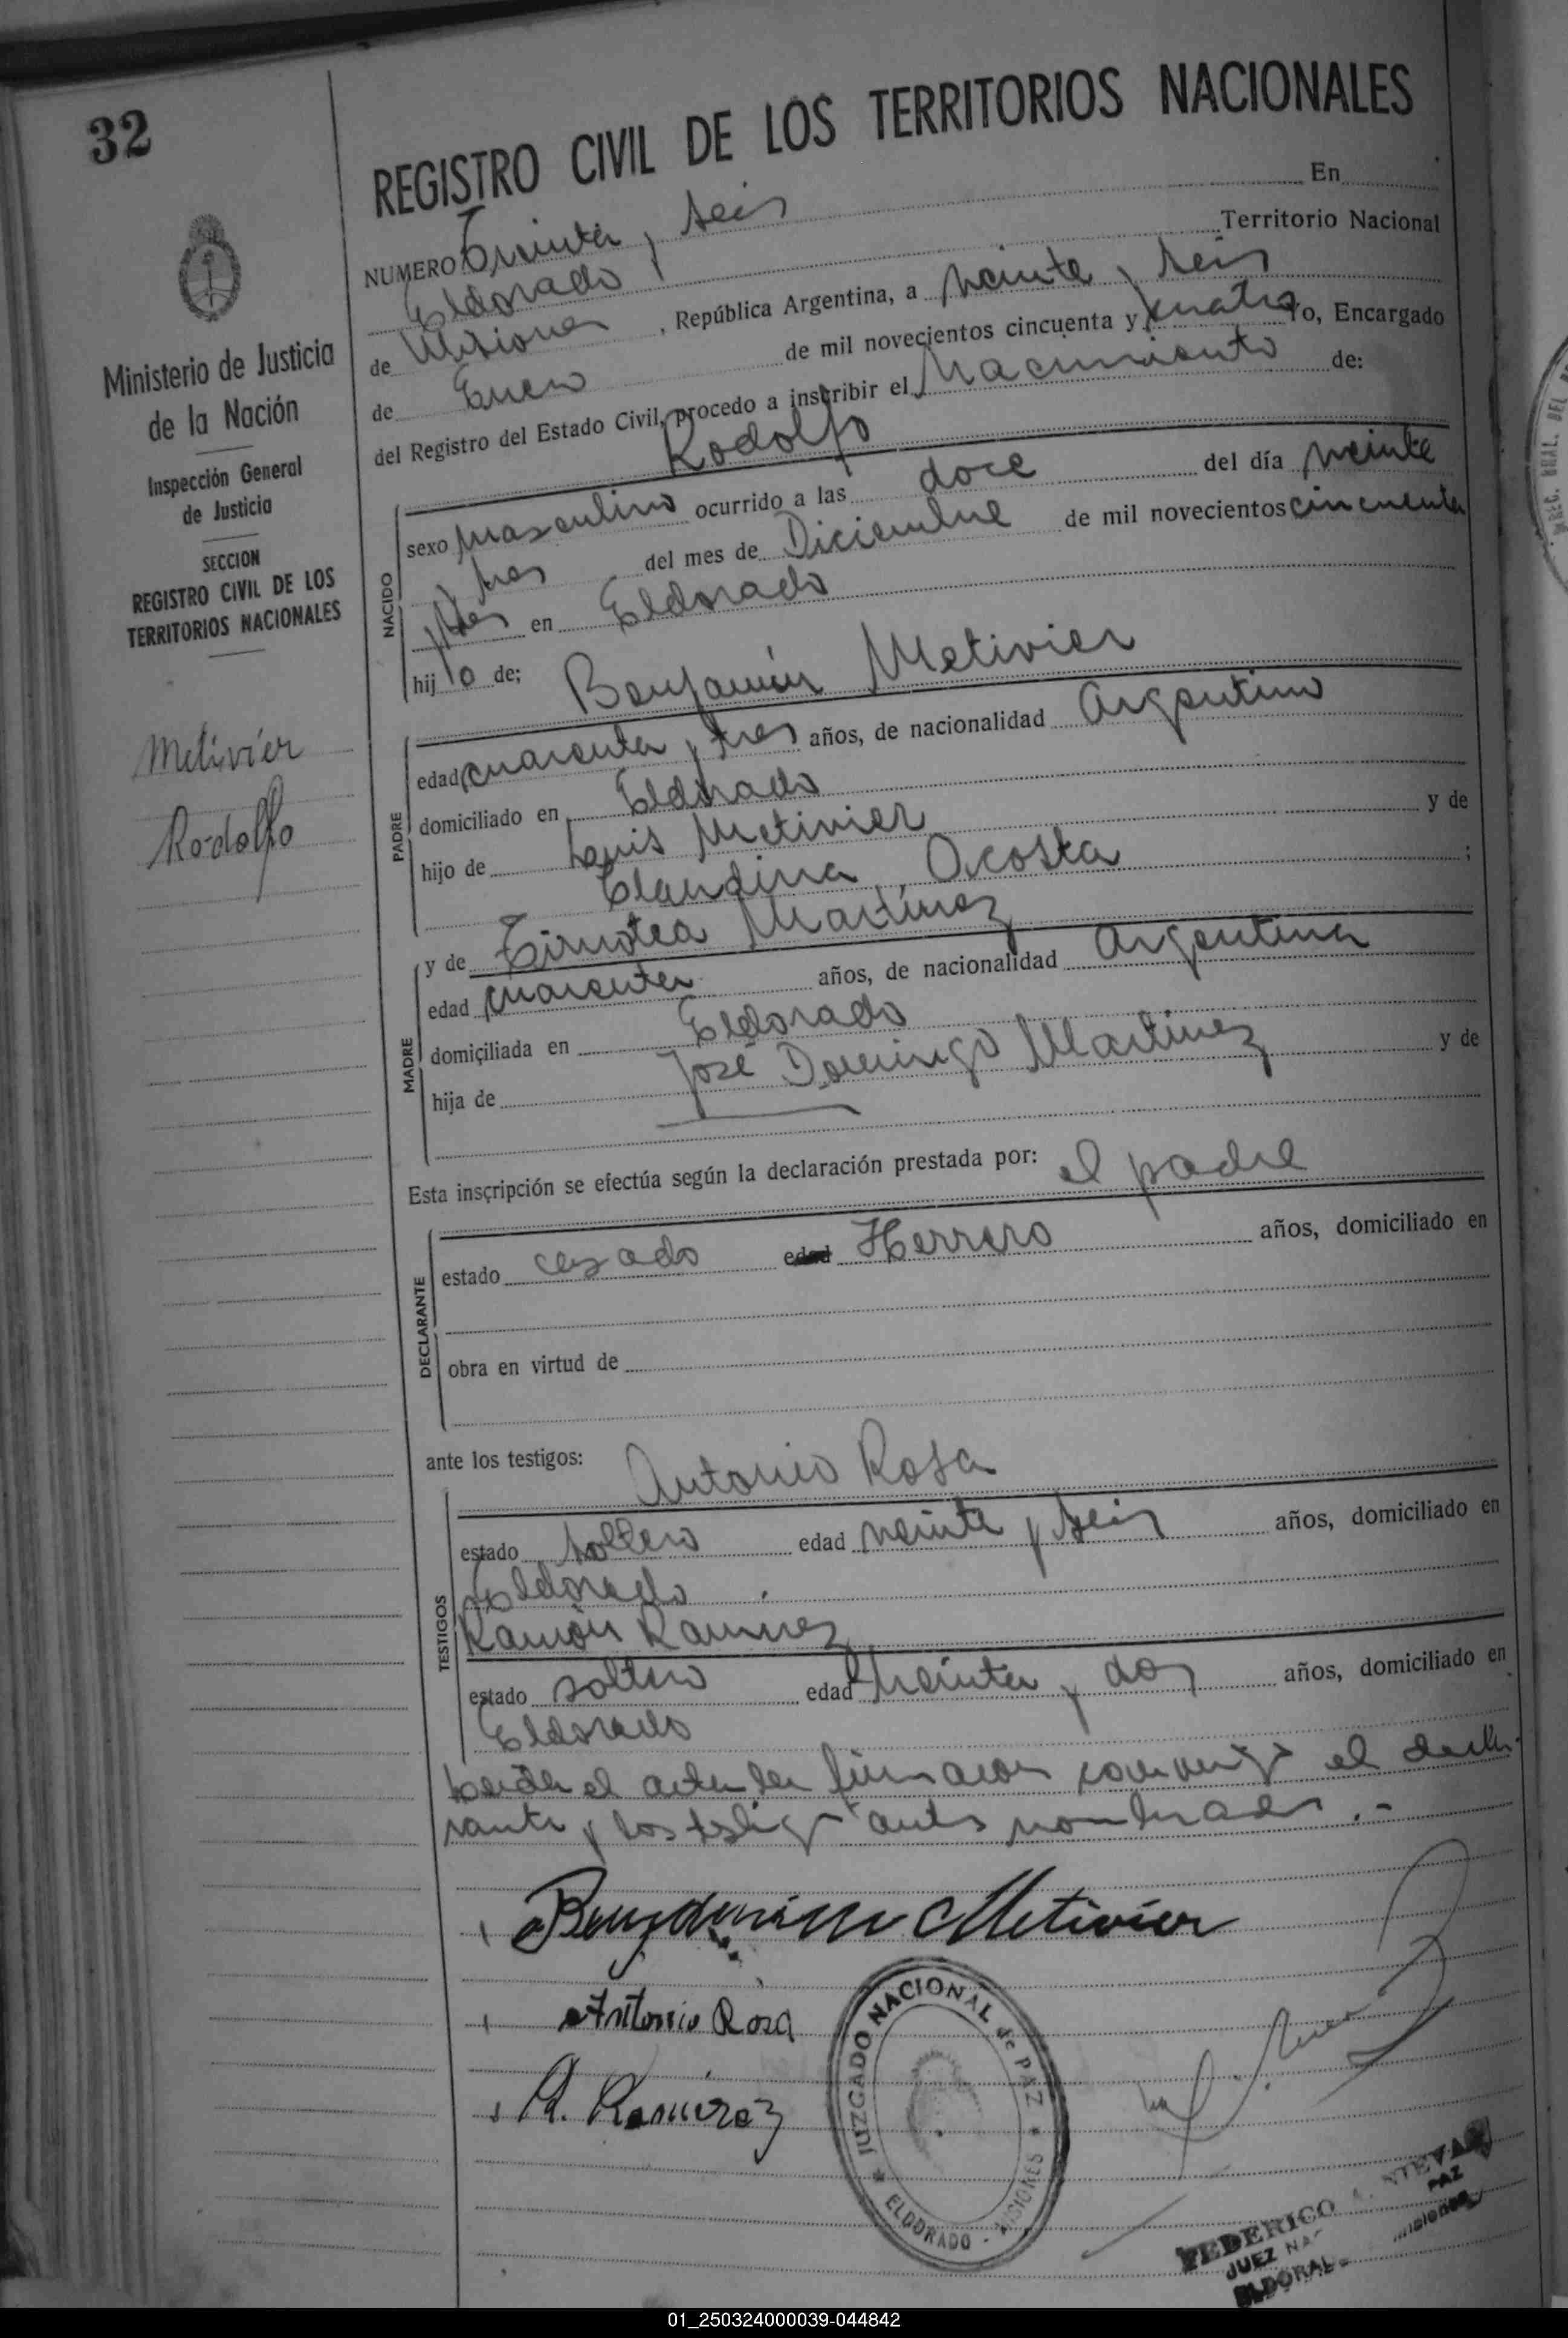 32
REGISTRO CIVIL DE LOS TERRITORIOS NACIONALES
NUMERO Treinta y seis En
Eldorado Territorio Nacional
de Misiones, República Argentina, a veinte y seis
de Enero de mil novecientos cincuenta y cuatro Yo, Encargado
del Registro del Estado Civil, procedo a inscribir el Nacimiento de:
Rodolfo
NACIDO
sexo masculino ocurrido a las doce del día veinte
y tres del mes de Diciembre de mil novecientos cincuenta
y tres en Eldorado
hijo de; Benjamín Metivier
PADRE
edad cuarenta y tres años, de nacionalidad Argentino
domiciliado en Eldorado
hijo de Luis Metivier y de
Claudina Acosta ;
y de Timotea Martinez
MADRE
edad cuarenta años, de nacionalidad Argentina
domiciliada en Eldorado
hija de José Domingo Martinez y de
Esta inscripción se efectúa según la declaración prestada por: el padre
DECLARANTE
estado casado edad Herrero años, domiciliado en
obra en virtud de
ante los testigos: Antonio Rosa
TESTIGOS
estado soltero edad veinte y seis años, domiciliado en
Eldorado
Ramón Ramirez
estado soltero edad treinta y dos años, domiciliado en
Eldorado
Leida el acta la firmaron conmigo el decla-
rante y los testigos antes nombrados.-
Benjamin Metivier
Antonio Rosa
R. Ramirez
JUZGADO NACIONAL de PAZ
ELDORADO - MISIONES
FEDERICO
JUEZ PAZ
Ministerio de Justicia
de la Nación
Inspección General
de Justicia
SECCION
REGISTRO CIVIL DE LOS
TERRITORIOS NACIONALES
Metivier
Rodolfo
01_250324000039-044842